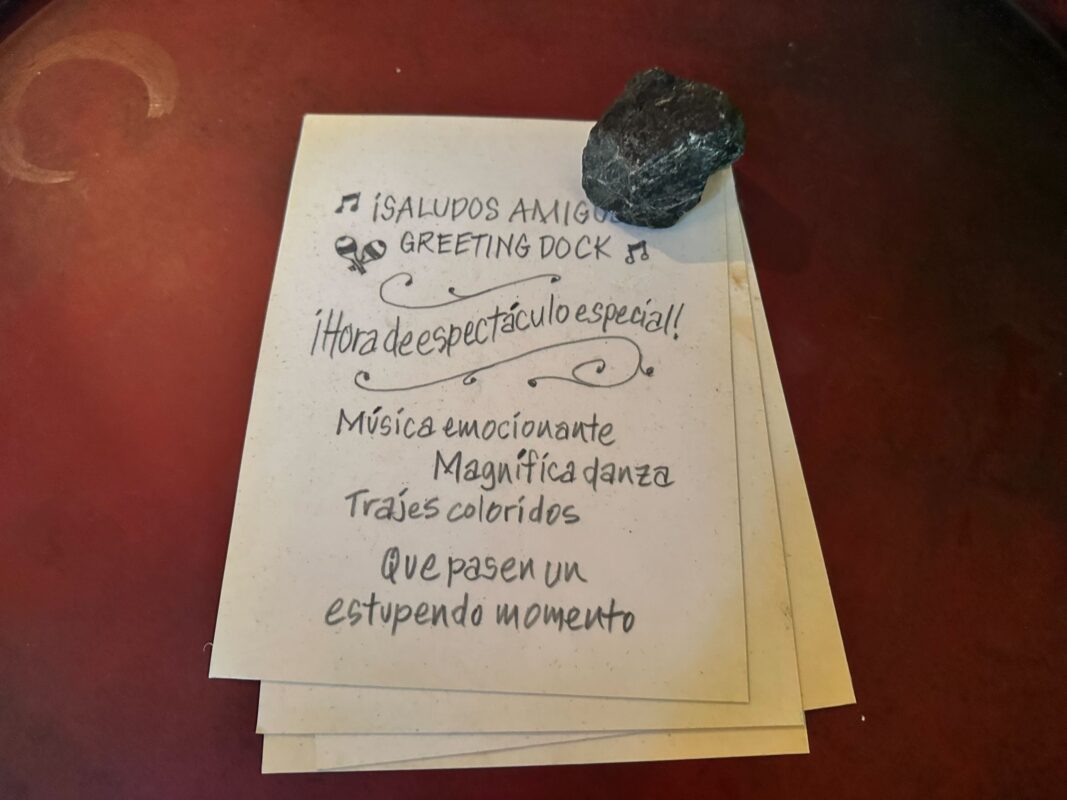 ¡SALUDOS AMIGOS
GREETING DOCK
¡Hora de espectáculo especial!
Música emocionante
Magnífica danza
Trajes coloridos
Que pasen un
estupendo momento